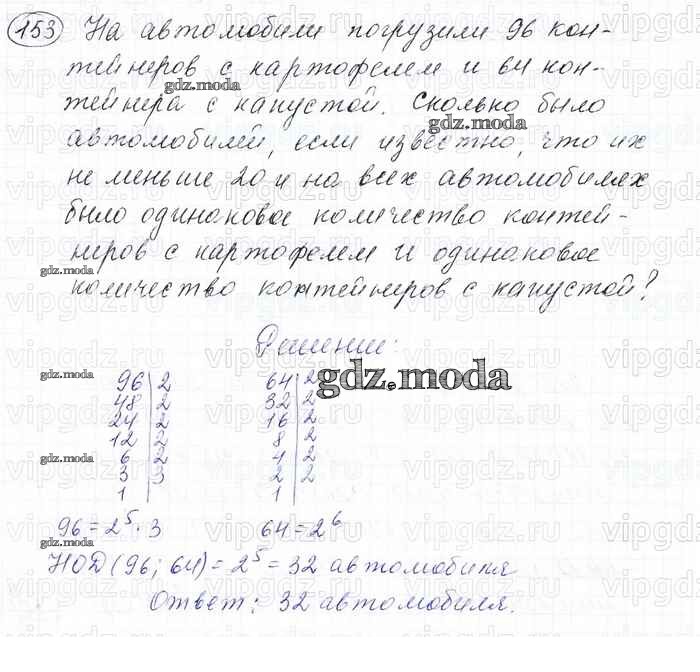 153 На автомобили погрузили 96 кон-
тейнеров с картофелем и 64 кон-
gdz.moda
тейнера с капустой. Сколько было
gdz.moda
автомобилей, если известно, что их
не меньше 20 и на всех автомобилях
было одинаковое количество контей-
неров с картофелем и одинаковое
gdz.moda
количество контейнеров с капустой?
Решение:
gdz.moda
gdz.moda
96 | 2 64 | 2
48 | 2 32 | 2
24 | 2 16 | 2
12 | 2 8 | 2
gdz.moda
6 | 2 4 | 2
3 | 3 2 | 2
1 | 1 |
96 = 2⁵ · 3 64 = 2⁶
gdz.moda
НОД (96; 64) = 2⁵ = 32 автомобиля
Ответ: 32 автомобиля.
vipgdz.ru